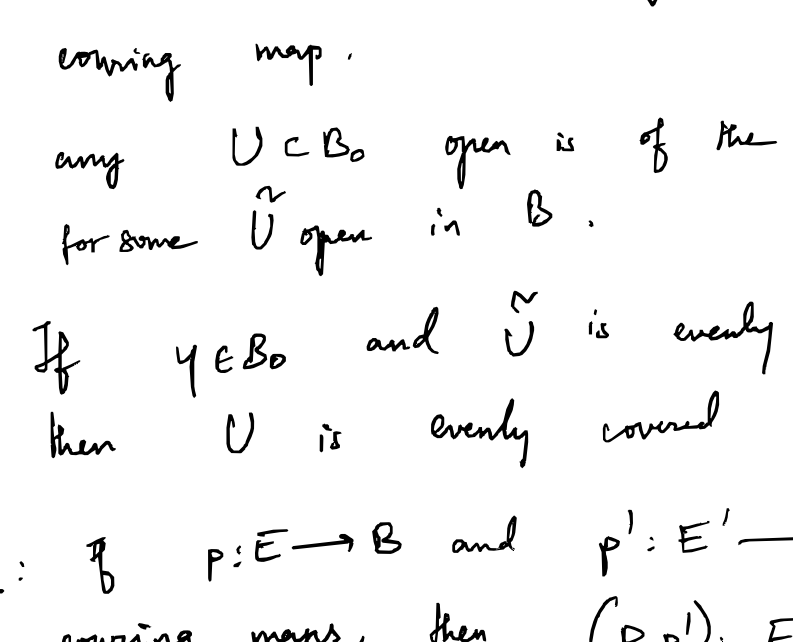 covering map.
any U ⊂ B₀ open is of the
for some Ũ open in B.
If y ∈ B₀ and Ũ is evenly
then U is evenly covered
: If p : E ⟶ B and p' : E' —
covering maps, then (p, p') : E